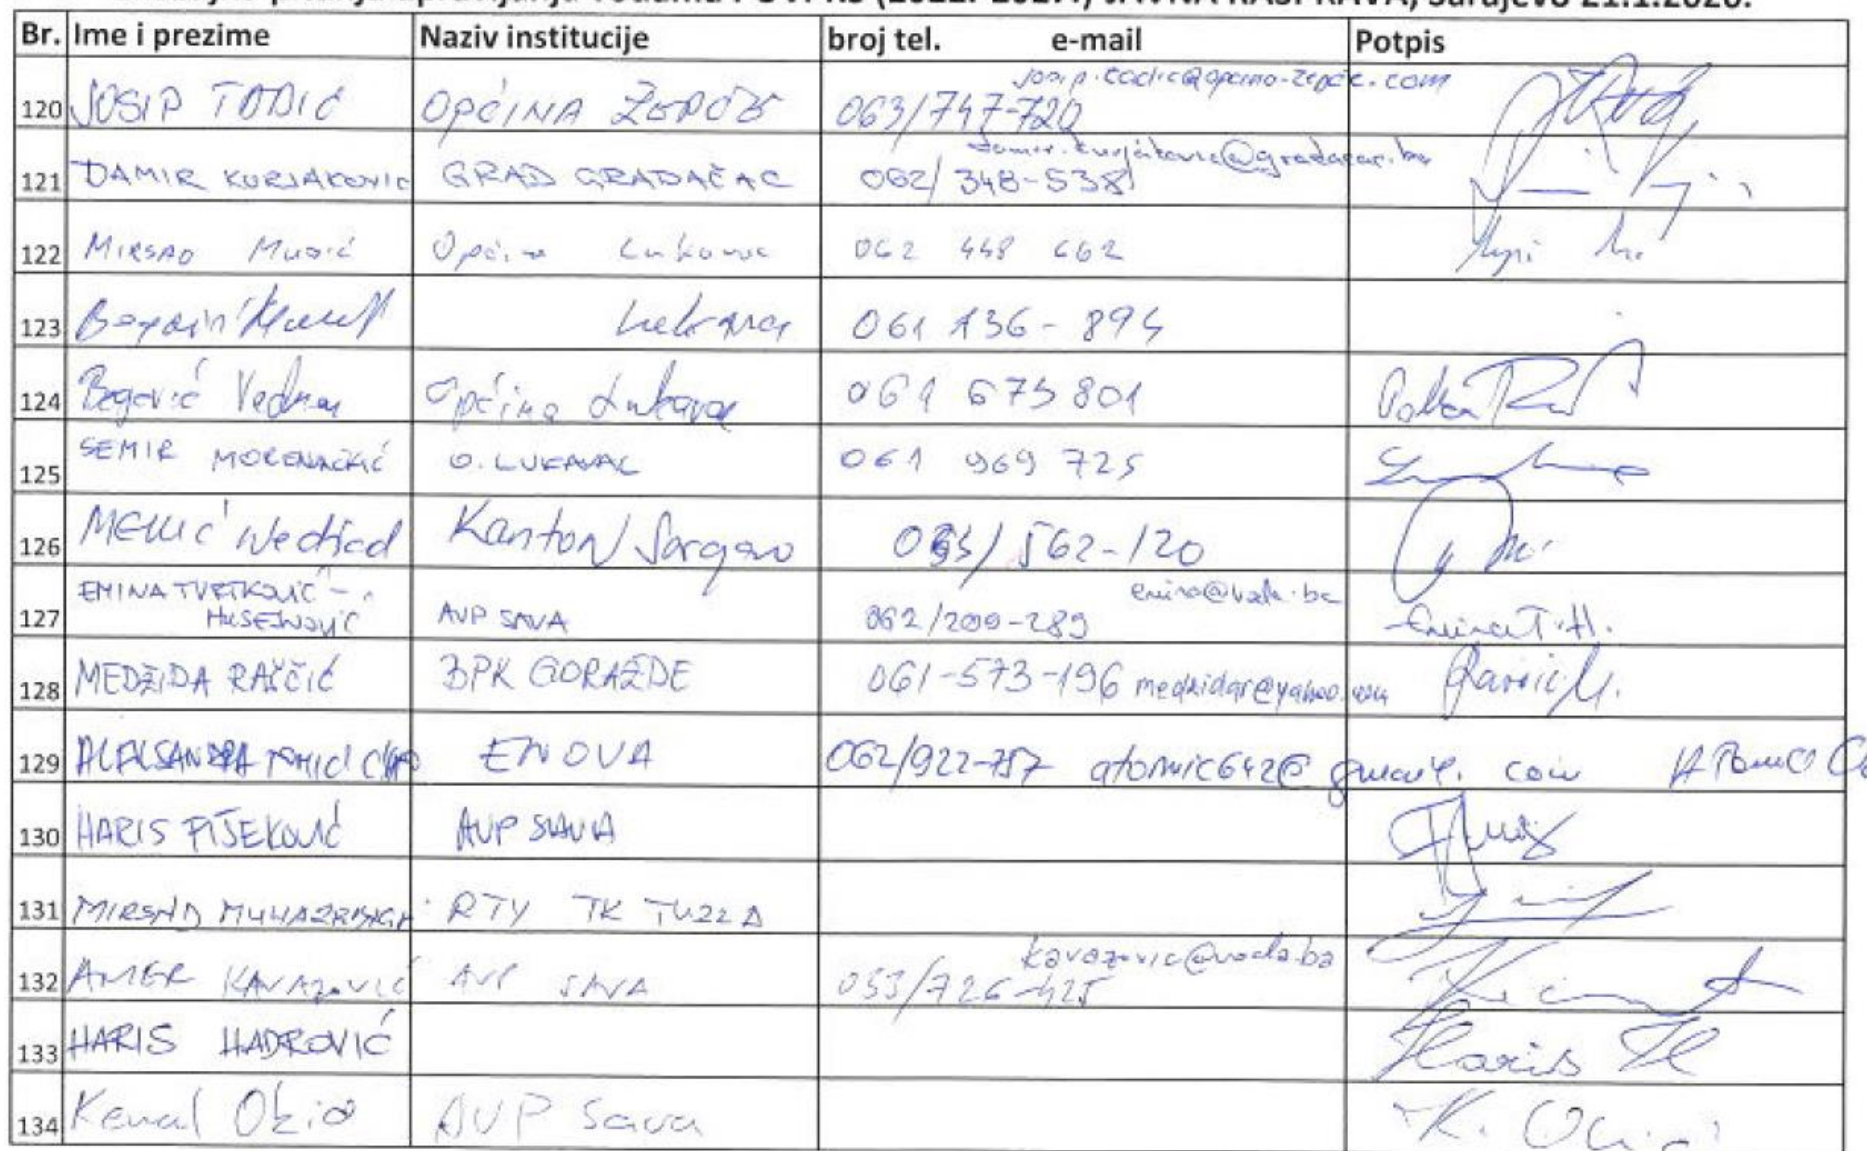 (2022.-2027.) JAVNA RASPRAVA, Sarajevo 21.1.2020.
Br. Ime i prezime Naziv institucije broj tel. e-mail Potpis
120 JOSIP TADIĆ OPĆINA ŽEPČE 063/747-720 josip.tadic@opcina-zepce.com
121 DAMIR KURJAKOVIC GRAD GRADAČAC 062/348-538 damir.kurjakovic@gradacac.ba
122 MIRSAD Općina Lukavac 062 448 662
123 Lukavac 061 136-894
124 Begović Vedran Općina Lukavac 061 675 801
125 SEMIR O. LUKAVAC 061 969 725
126 Kanton Sarajevo 562-120
127 EMINA TVRTKOVIĆ-
HUSEJNOVIĆ AVP SAVA 062/200-289 Emina T.H.
128 MEDŽIDA RAŠČIĆ BPK GORAŽDE 061-573-196 medzidar@yahoo.com
129 ALEKSANDRA TOMIĆ ENOVA 062/922-757 atomic642@gmail.com
130 HARIS PIJEKOVIĆ AVP SAVA
131 MIRSAD TK TUZLA
132 AMER KAVAZOVIĆ AVP SAVA 033/726-425 kavazovic@voda.ba
133 HARIS HADROVIĆ Haris H
134 Kemal AVP Sava K.